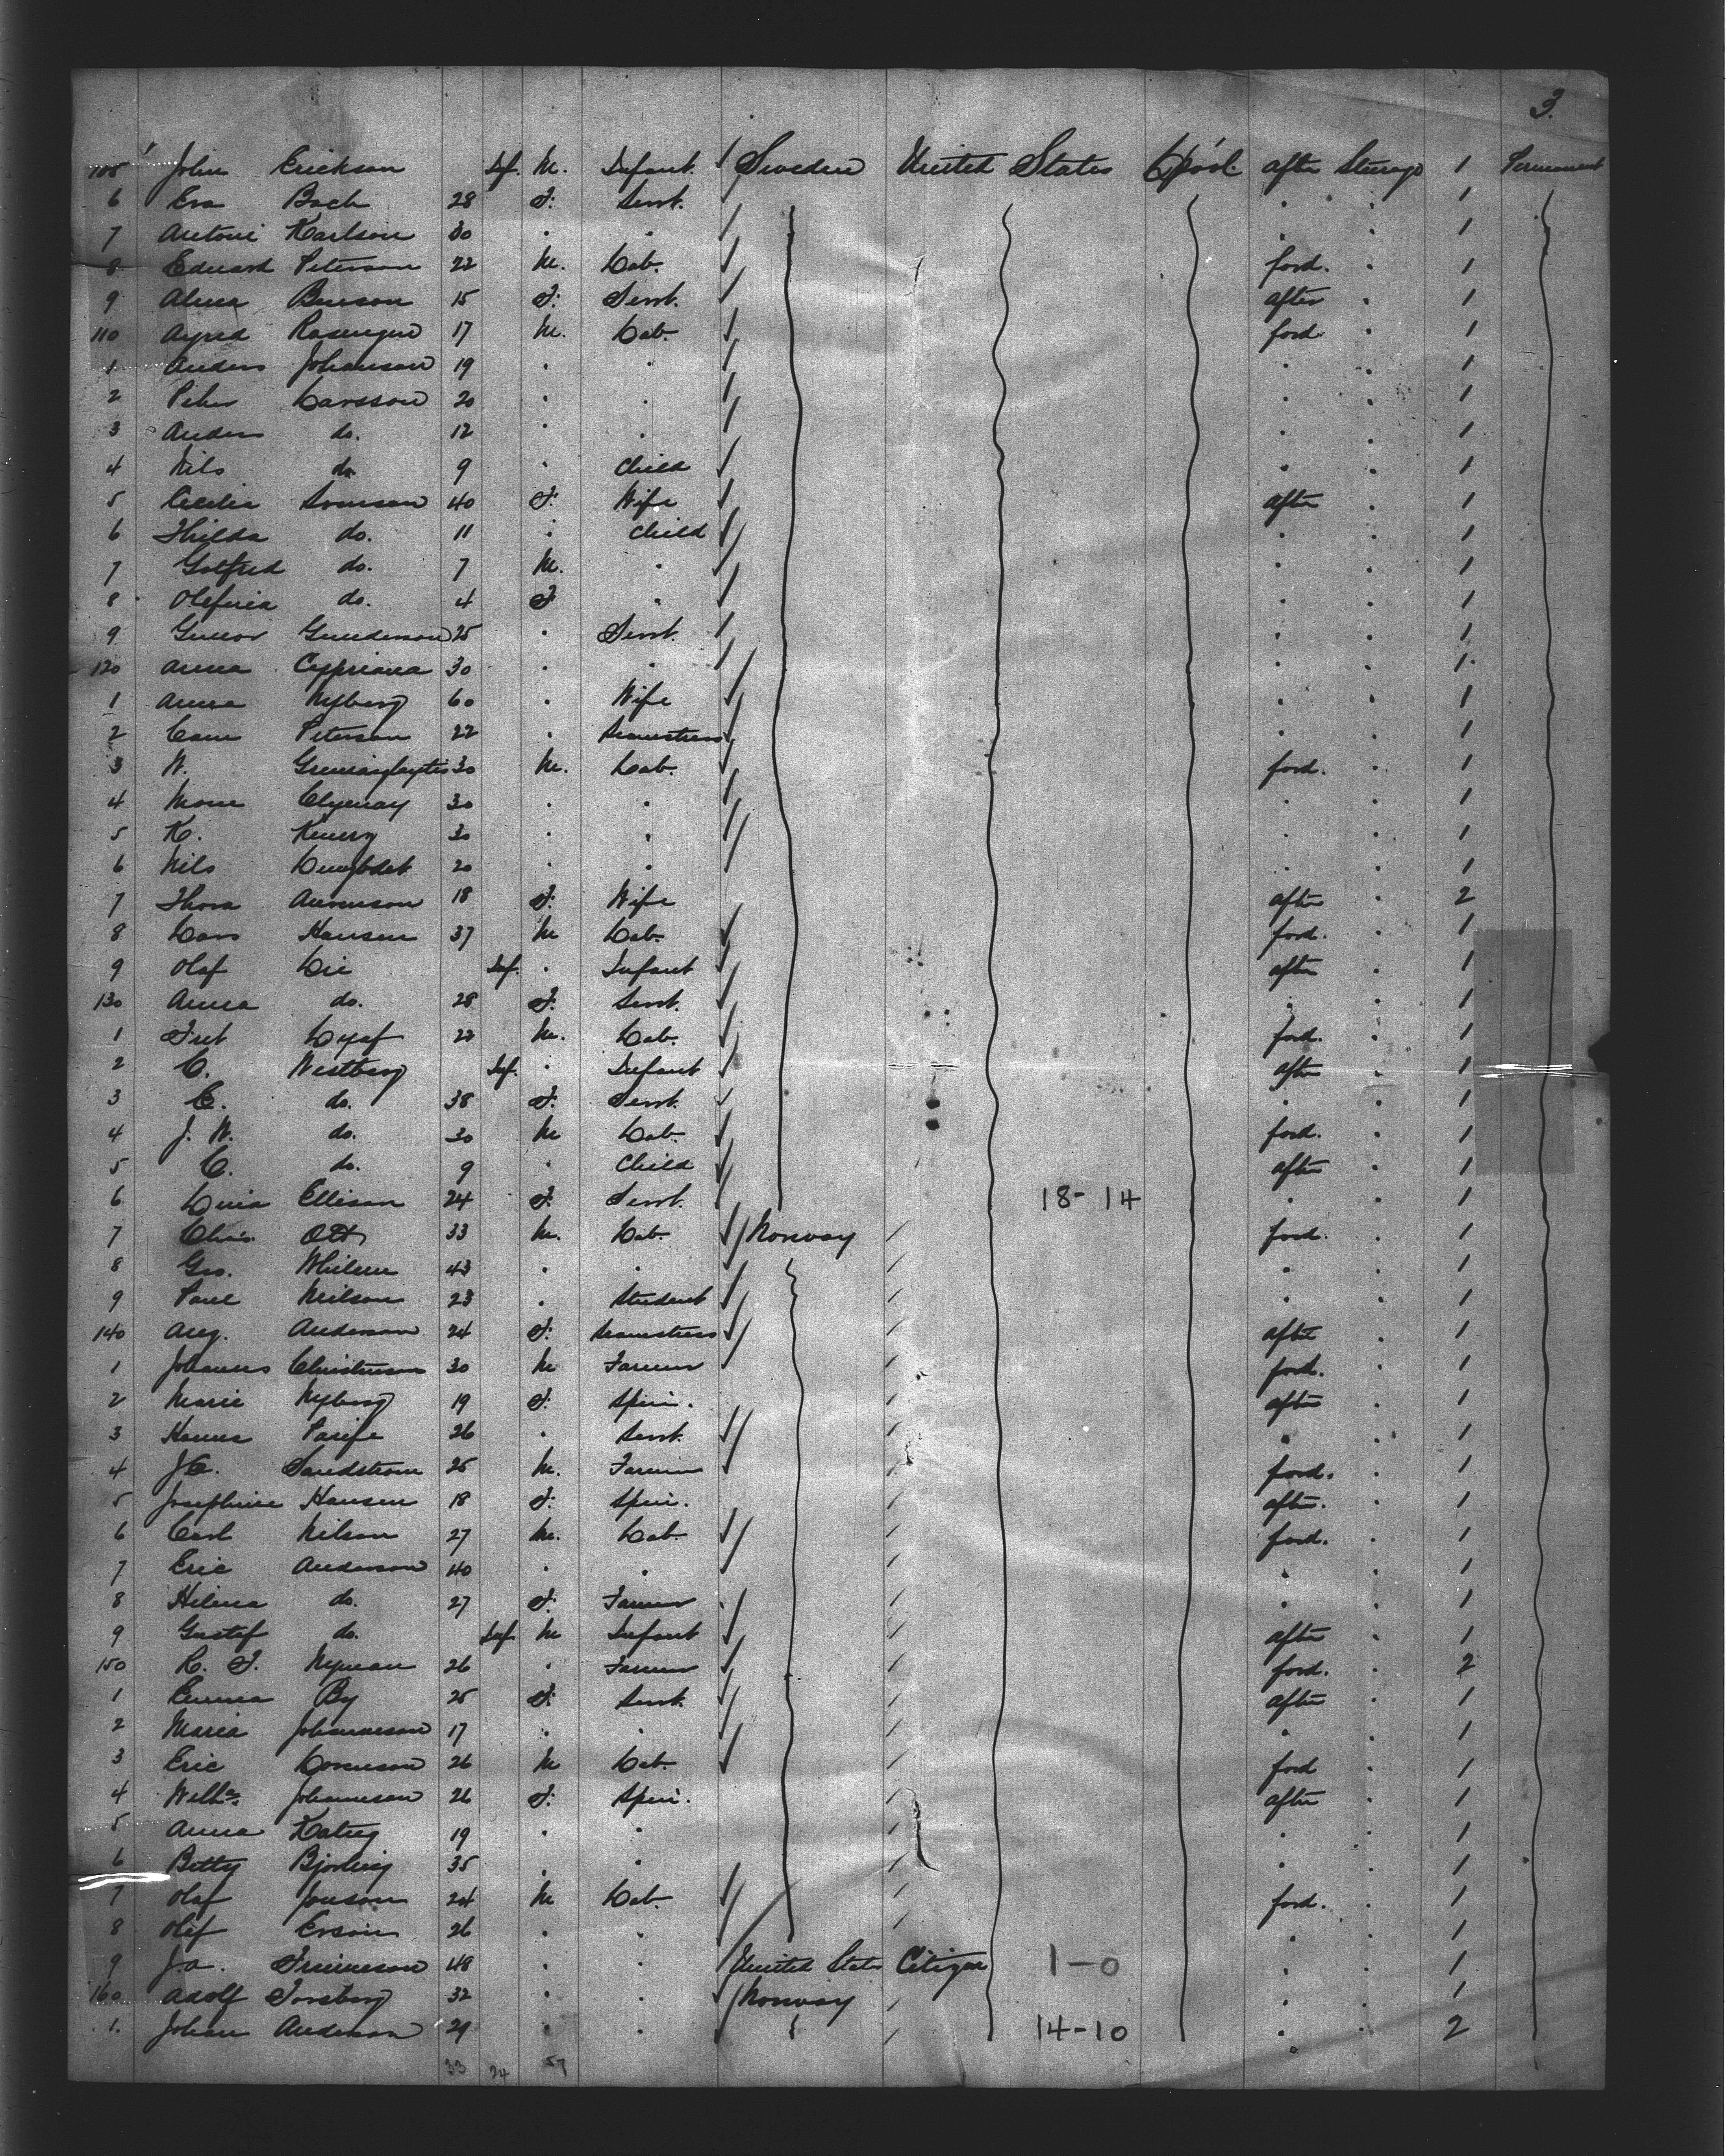 3.
105 John Erickson Inf. M. Infant. Sweden United States L'pool after Steerage 1 Permanent
6 Eva Bach 28 F. Servt. 1
7 Antoni Karlson 30 1
8 Edward Peterson 22 M. Lab. ford. 1
9 Alma Benson 15 F. Servt. after 1
110 17 M. Lab. ford. 1
1 Anders Johanson 19 1
2 Peter Larsson 20 1
3 Anders do. 12 1
4 Nils do. 9 Child 1
5 Cecilia 40 F. Wife after 1
6 Thilda do. 11 Child 1
7 Gotfred do. 7 M. 1
8 do. 4 F 1
9 Gunderson 25 Servt. 1
120 Anna Cypriana 30 1
1 Anna Nyberg 60 Wife 1
2 Peterson 22 Seamstress 1
3 W. 30 M. Lab. ford. 1
4 30 1
5 K. 30 1
6 Nils 20 1
7 Thora 18 F. Wife after 2
8 Lars Hansen 37 M Lab. ford. 1
9 Olaf Lie Inf. Infant after 1
130 Anna do. 28 F. Servt. 1
1 22 M. Lab. ford. 1
2 C. Westberg Inf. Infant after 1
3 E. do. 38 F. Servt. 1
4 J. W. do. 30 M Lab. ford. 1
5 C. do. 9 Child after 1
6 Ellison 24 F. Servt. 18-14 1
7 Chris. Ott 33 M. Lab. Norway ford. 1
8 Geo. 43 1
9 Paul Neilson 23 Student 1
140 Aug. Anderson 24 F. Seamstress after 1
1 Johannes Christenson 30 M Farmer ford. 1
2 Marie Nyberg 19 F. Spin. after 1
3 26 Servt. 1
4 J.C. Sandstrom 25 M. Farmer ford. 1
5 Josephine Hansen 18 F. Spin. after. 1
6 Carl Nilson 27 M. Lab. ford. 1
7 Eric Anderson 40 1
8 Helena do. 27 F. Farmer 1
9 Gustaf do. Inf. M Infant after 1
150 R. F. Nyman 26 Farmer ford. 2
1 Emma By 25 F. Servt. after 1
2 Maria Johanneson 17 1
3 Eric Lorenson 26 M Lab. ford 1
4 Johanneson 26 F. Spin. after 1
5 Anna 19 1
6 Betty Bjorling 35 1
7 Olaf Jonson 24 M Lab. ford. 1
8 Olef Erson 26 1
9 J.A. 48 United States Citizen 1-0 1
160 Adolf Forsberg 32 Norway 1
1. Johan Anderson 29 14-10 2
33 24 57